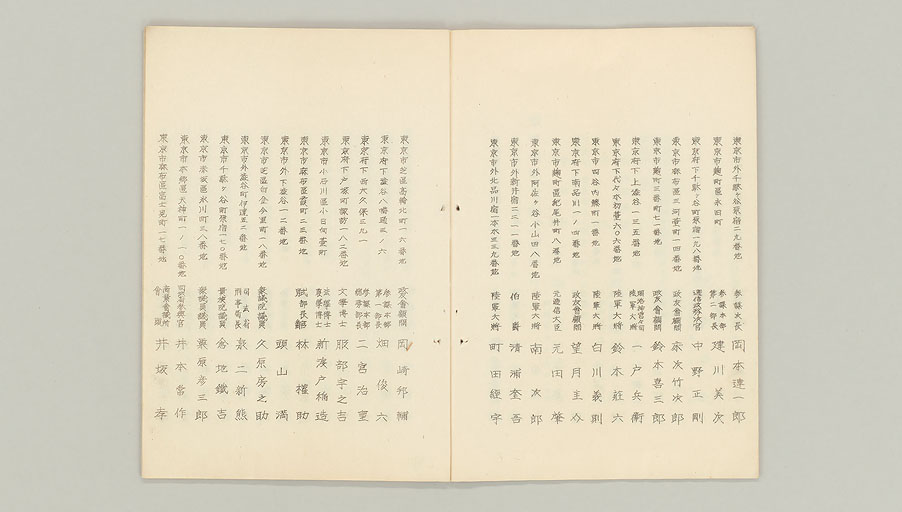 東京市外千駄ヶ谷原宿二九番地 參謀次長 岡本連一郎
東京市麹町區永田町 參謀本部第二部長 建川美次
東京府下千駄ヶ谷町原宿一九八番地 遞信政務次官 中野正剛
東京市麻布區三河臺町一四番地 政友會顧問 床次竹次郎
東京市麹町三番町七一番地 政友會顧問 鈴木喜三郎
東京府下上澁谷一三五番地 明治神宮々司陸軍大將 一戸兵衛
東京府下代々木初臺六〇六番地 陸軍大將 鈴木莊六
東京市四谷内藤町一番地 陸軍大將 白川義則
東京府下南品川一ノ四番地 政友會顧問 望月圭介
東京市麹町區紀尾井町八番地 元遞信大臣 元田肇
東京市外阿佐ヶ谷小山四八番地 陸軍大將 南次郎
東京市外新井宿二三一一番地 伯爵 清浦奎吾
東京市外北品川宿一本木三三九番地 陸軍大將 町田經宇
東京市芝區高輪北町一六番地 政友會顧問 岡崎邦輔
東京府下澁谷八幡通三ノ六 參謀本部第一部長 畑俊六
東京府下西大久保三九一 參謀本部總務部長 二宮治重
東京府下戸塚町諏訪一八二番地 文學博士 服部宇之吉
東京市小石川區小日向臺町 法學博士農學博士 新渡戸稲造
東京市麻布區霞町二三番地 式部長官 林權助
東京市外下澁谷一二番地 頭山滿
東京市芝區白金今里町一八番地 衆議院議員 久原房之助
東京市外澁谷町伊達五二番地 司法省刑事局長 泉二新熊
東京市千駄ヶ谷町原宿一七〇番地 貴族院議員 倉地鐵吉
東京市赤坂區氷川町三八番地 衆議院議員 粟原彦三郎
東京市本郷區天神町一ノ一〇番地 參與官 井本常作
東京市麻布區富士見町一七番地 商業會議所會頭 井坂孝